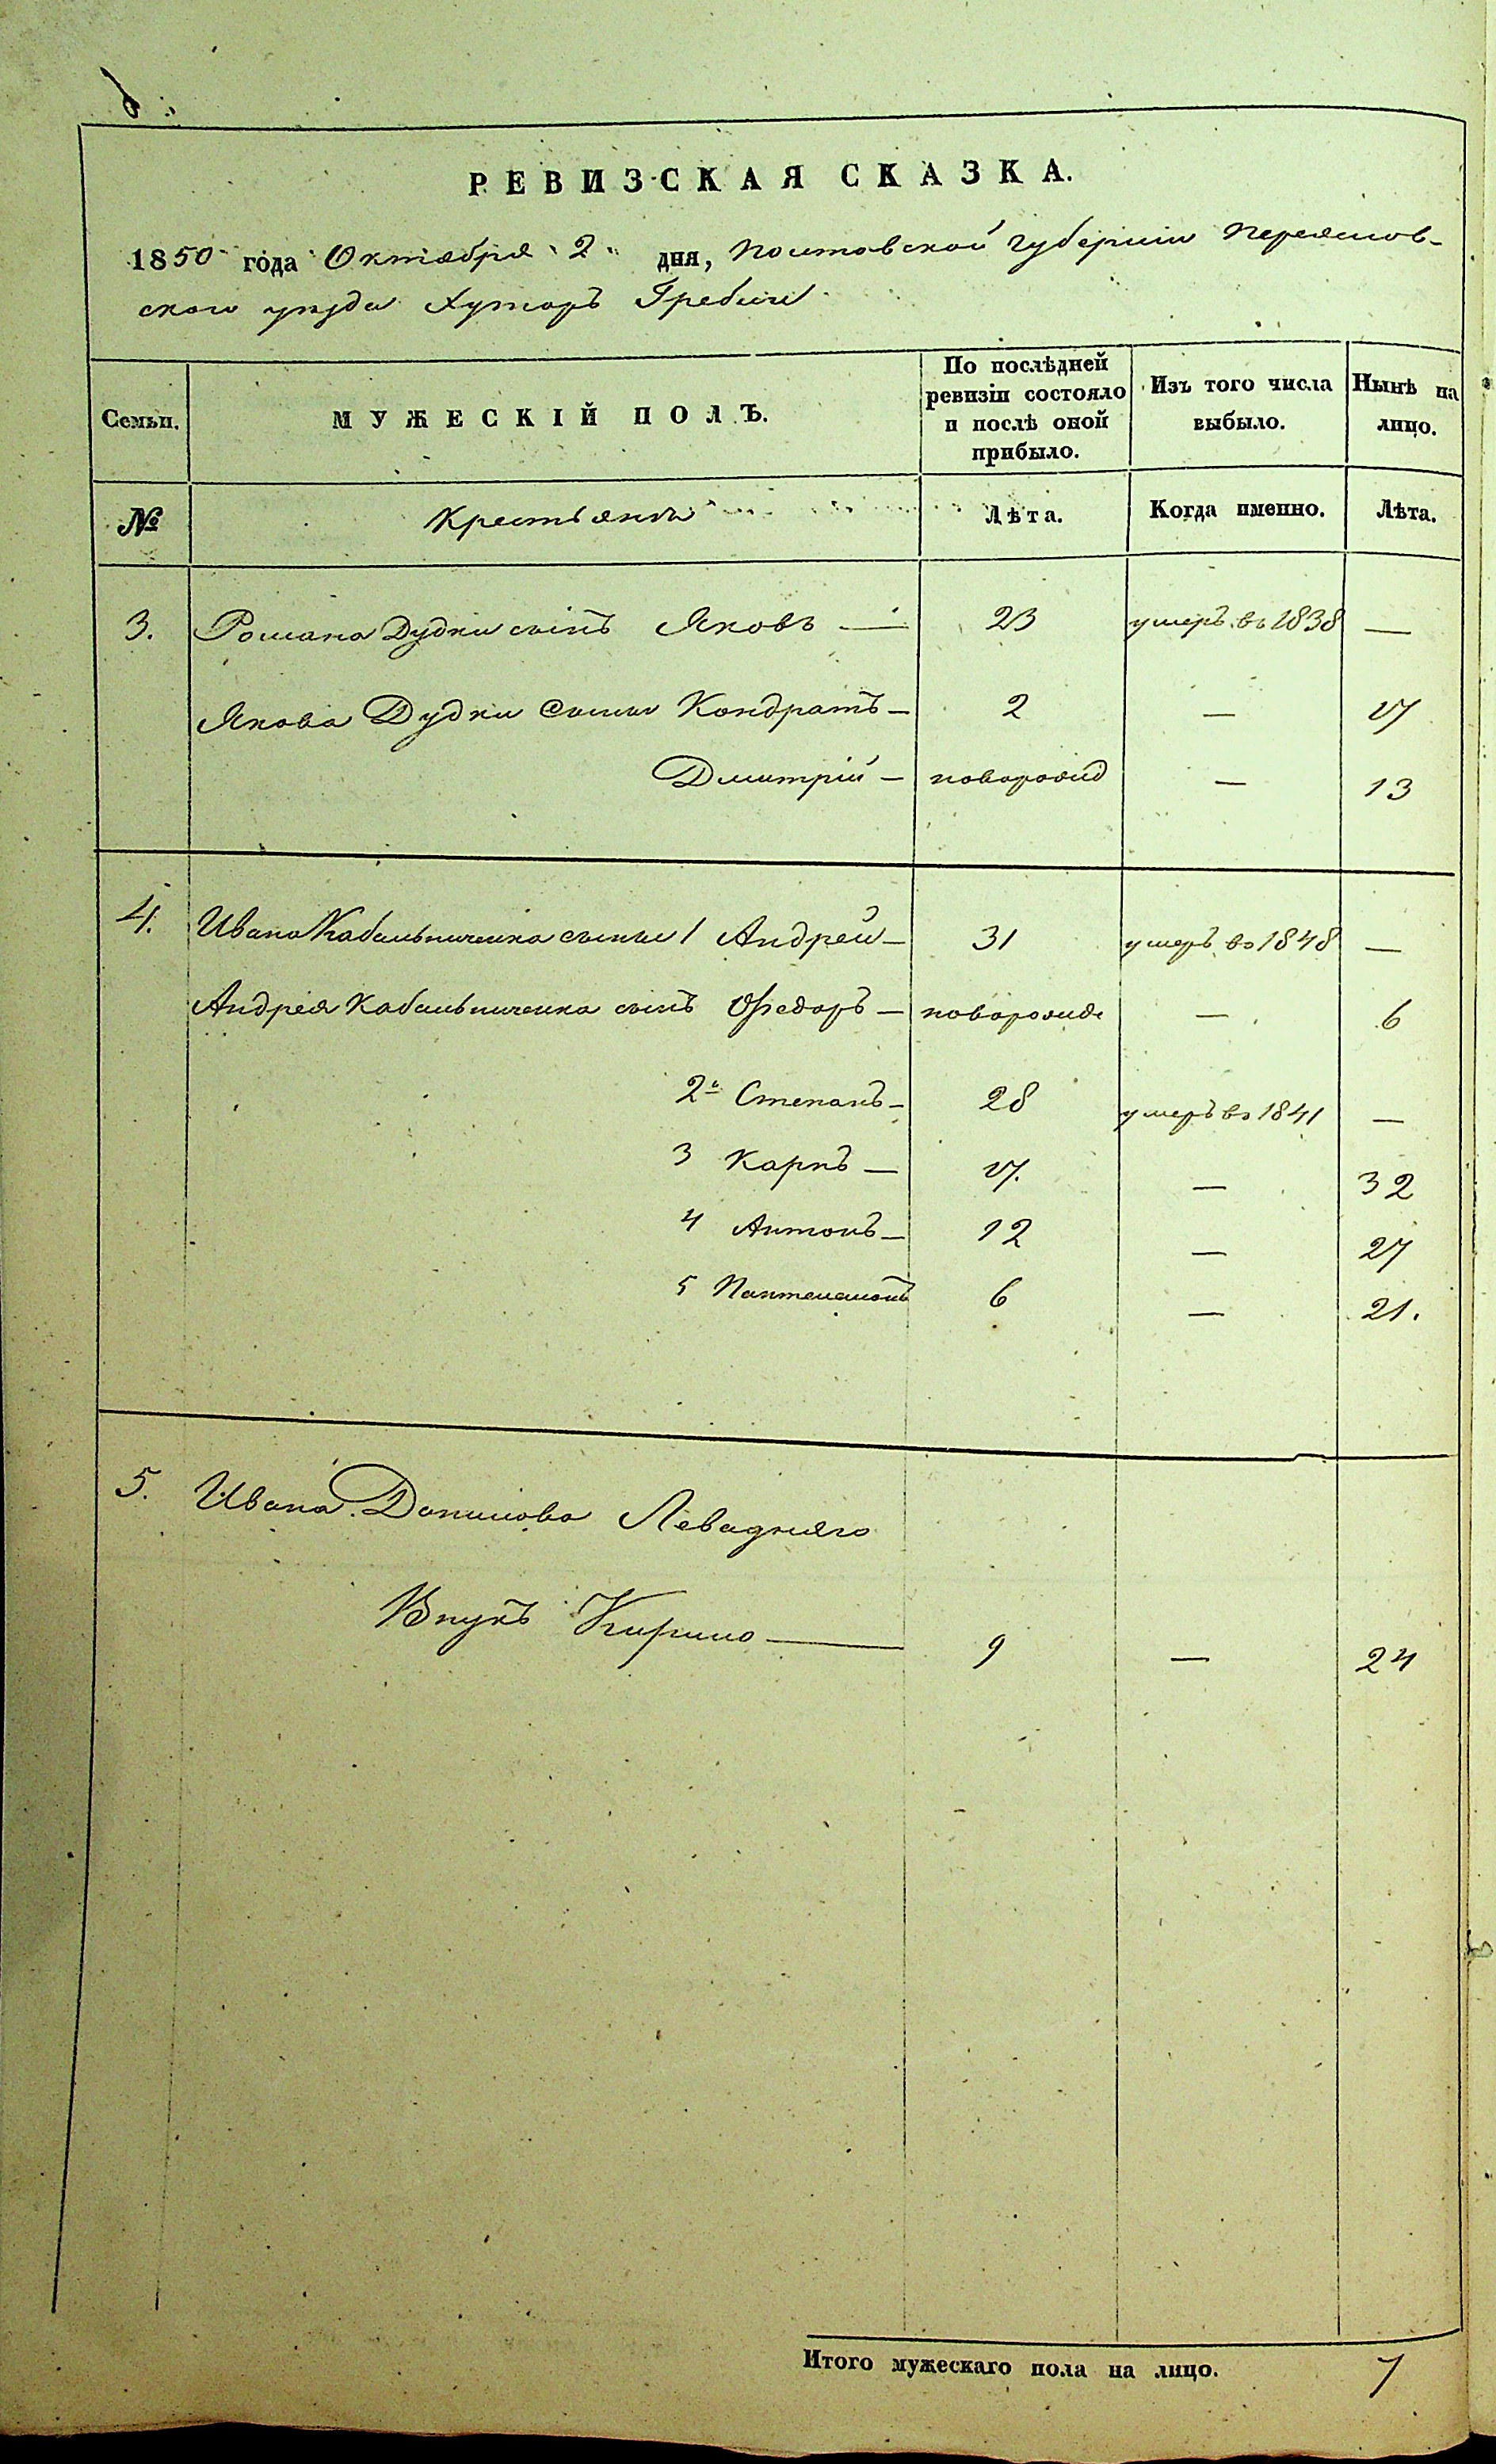 РЕВИЗСКАЯ СКАЗКА.
1850 года Октября "2" дня, Полтавской губерніи Переяслов-
ского уѣзда Хуторъ Гребли
Семьи.
МУЖЕСКІЙ ПОЛЪ.
По послѣдней ревизіи состояло и послѣ оной прибыло.
Изъ того числа выбыло.
Нынѣ на лицо.
№ Крестьяне Лѣта. Когда именно. Лѣта.
3. Романа Дудки сынъ Яковъ — 23 умеръ въ 1838 —
Якова Дудки сыны Кондратъ — 2 — 17
Дмитрій — новорожд — 13
4. Ивана Кобыльниченка сыны 1 Андрей — 31 умеръ въ 1848 —
Андрея Кобыльниченка сынъ Ѳедоръ — новорожде — 6
2й Степанъ — 28 умеръ въ 1841 —
3 Карпъ — 17. — 32
4 Антонъ — 12 — 27
5 Пантелемонъ 6 — 21.
5. Ивана Данилова Левадняго
Внукъ Кирило — 9 — 24
Итого мужескаго пола на лицо. 7